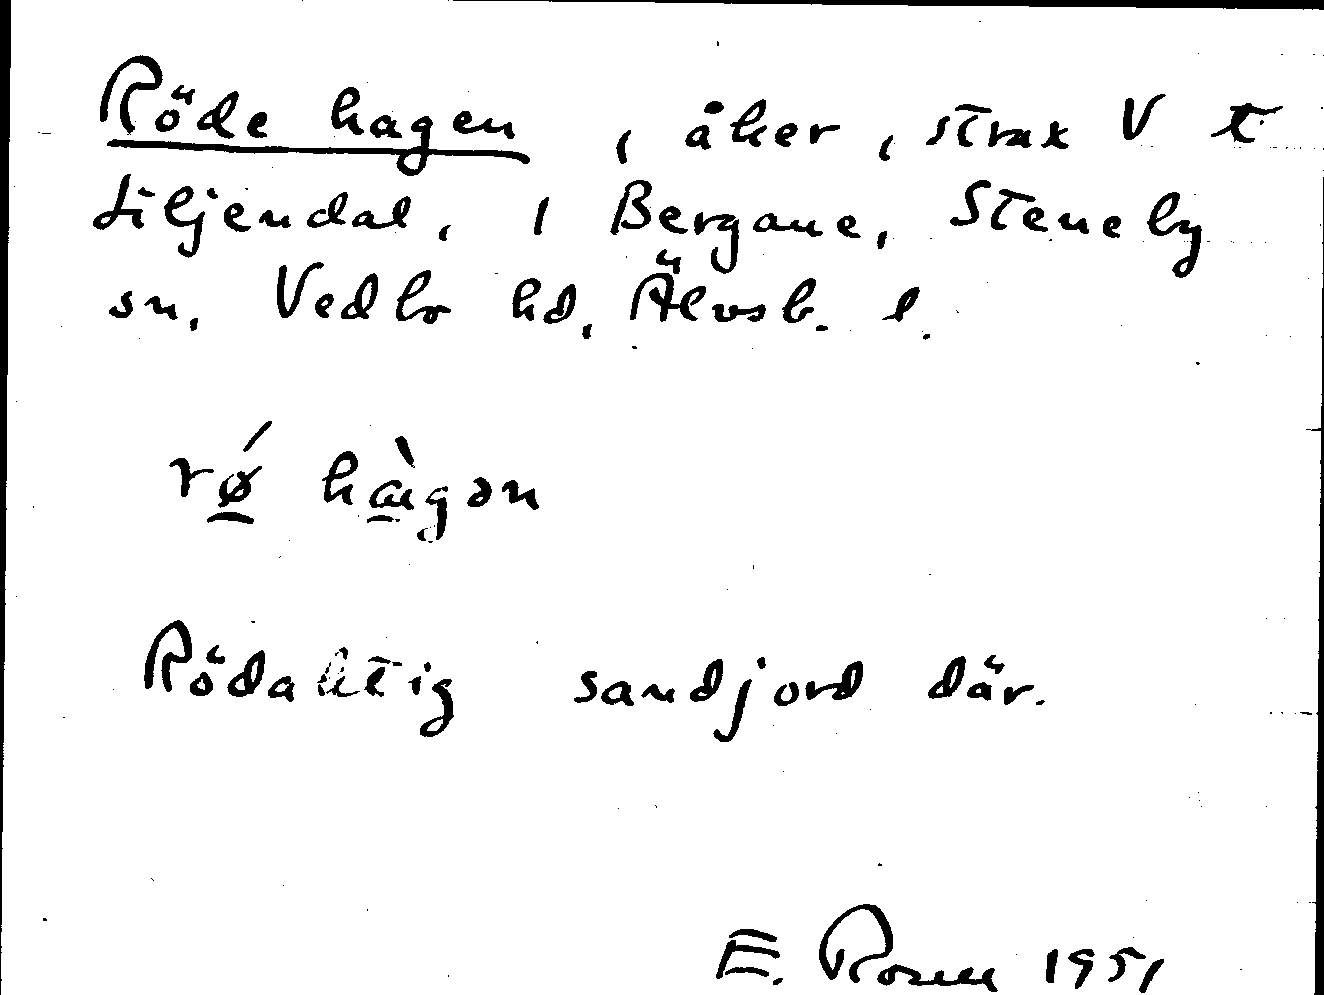 Röde hagen, åker, strax V t
Liljendal, i Bergane, Steneby
sn, Vedbo hd, Älvsb. l.
rǿ hàgən
Rödaktig sandjord där.
E. Rosell 1951